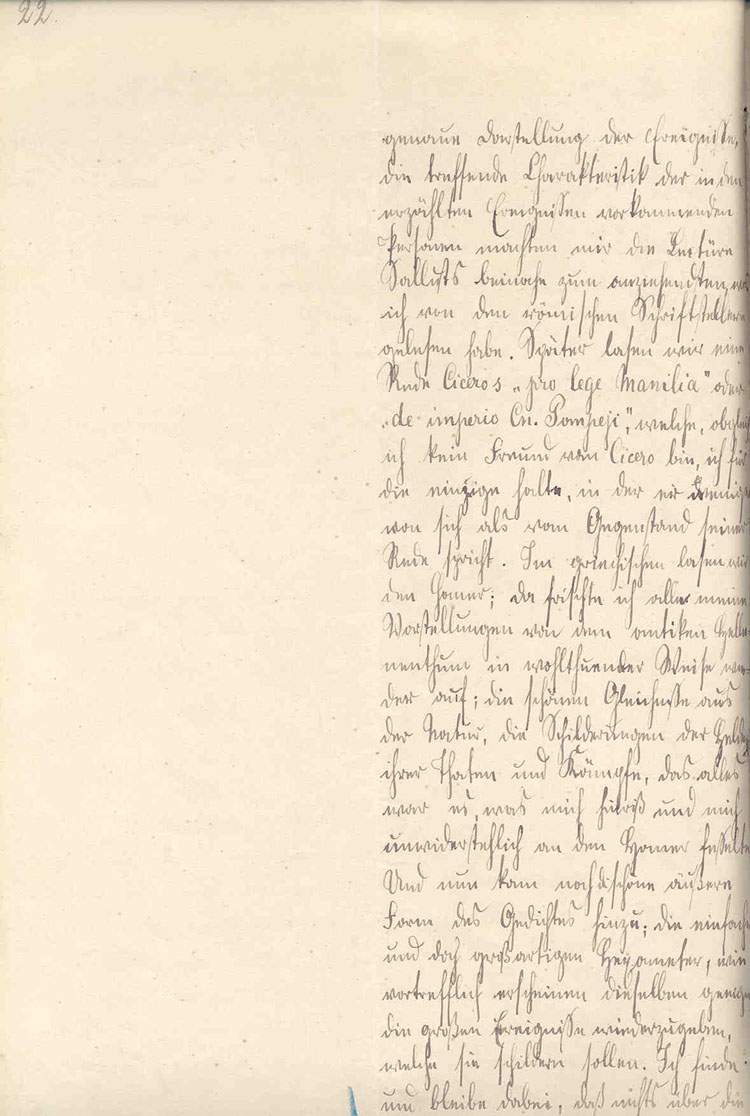 22.
genaue Darstellung der Ereignisse,
die treffende Charakteristik der in den
erzählten Ereignissen vorkommenden
Personen machten mir die Lectüre
Sallusts beinahe zum anziehendsten, was
ich von den römischen Schriftstellern
gelesen habe. Später lasen wir eine
Rede Ciceros „pro lege Manilia" oder
„de imperio Cn. Pompeji", welche, obgleich
ich kein Freund von Cicero bin, ich für
die einzige halte, in der er weniger
von sich als vom Gegenstand seiner
Rede spricht. Im griechischen lasen wir
den Homer; da frischte ich alle meine
Vorstellungen von dem antiken Helle-
nenthum in wohlthuender Weise wie-
der auf; die schönen Gleichnisse aus
der Natur, die Schilderungen der Helden
ihrer Thaten und Kämpfe, das alles
war es, was mich hinriß und mich
unwiderstehlich an den Homer fesselte
Und nun kam noch die schöne äußere
Form des Gedichtes hinzu; die einfachen
und doch großartigen Hexameter, wie
vortrefflich erscheinen dieselben geeignet
die großen Ereignisse wiederzugeben,
welche sie schildern sollen. Ich finde
und bleibe dabei, daß nichts über die